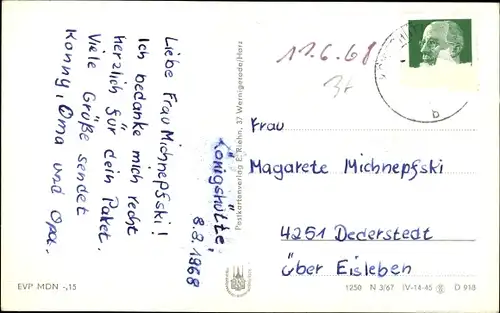 Königshütte,
8.8.1968
Liebe Frau Michnepfski!
Ich bedanke mich recht
herzlich für dein Paket.
Viele Grüße sendet
Konny, Oma und Opa.
EVP MDN -,15
Postkartenverlag E. Riehn, 37 Wernigerode/Harz
11.6.68
b
Frau
Magarete Michnepfski
4251 Dederstedt
über Eisleben
1250 N 3/67 IV-14-45 D 918